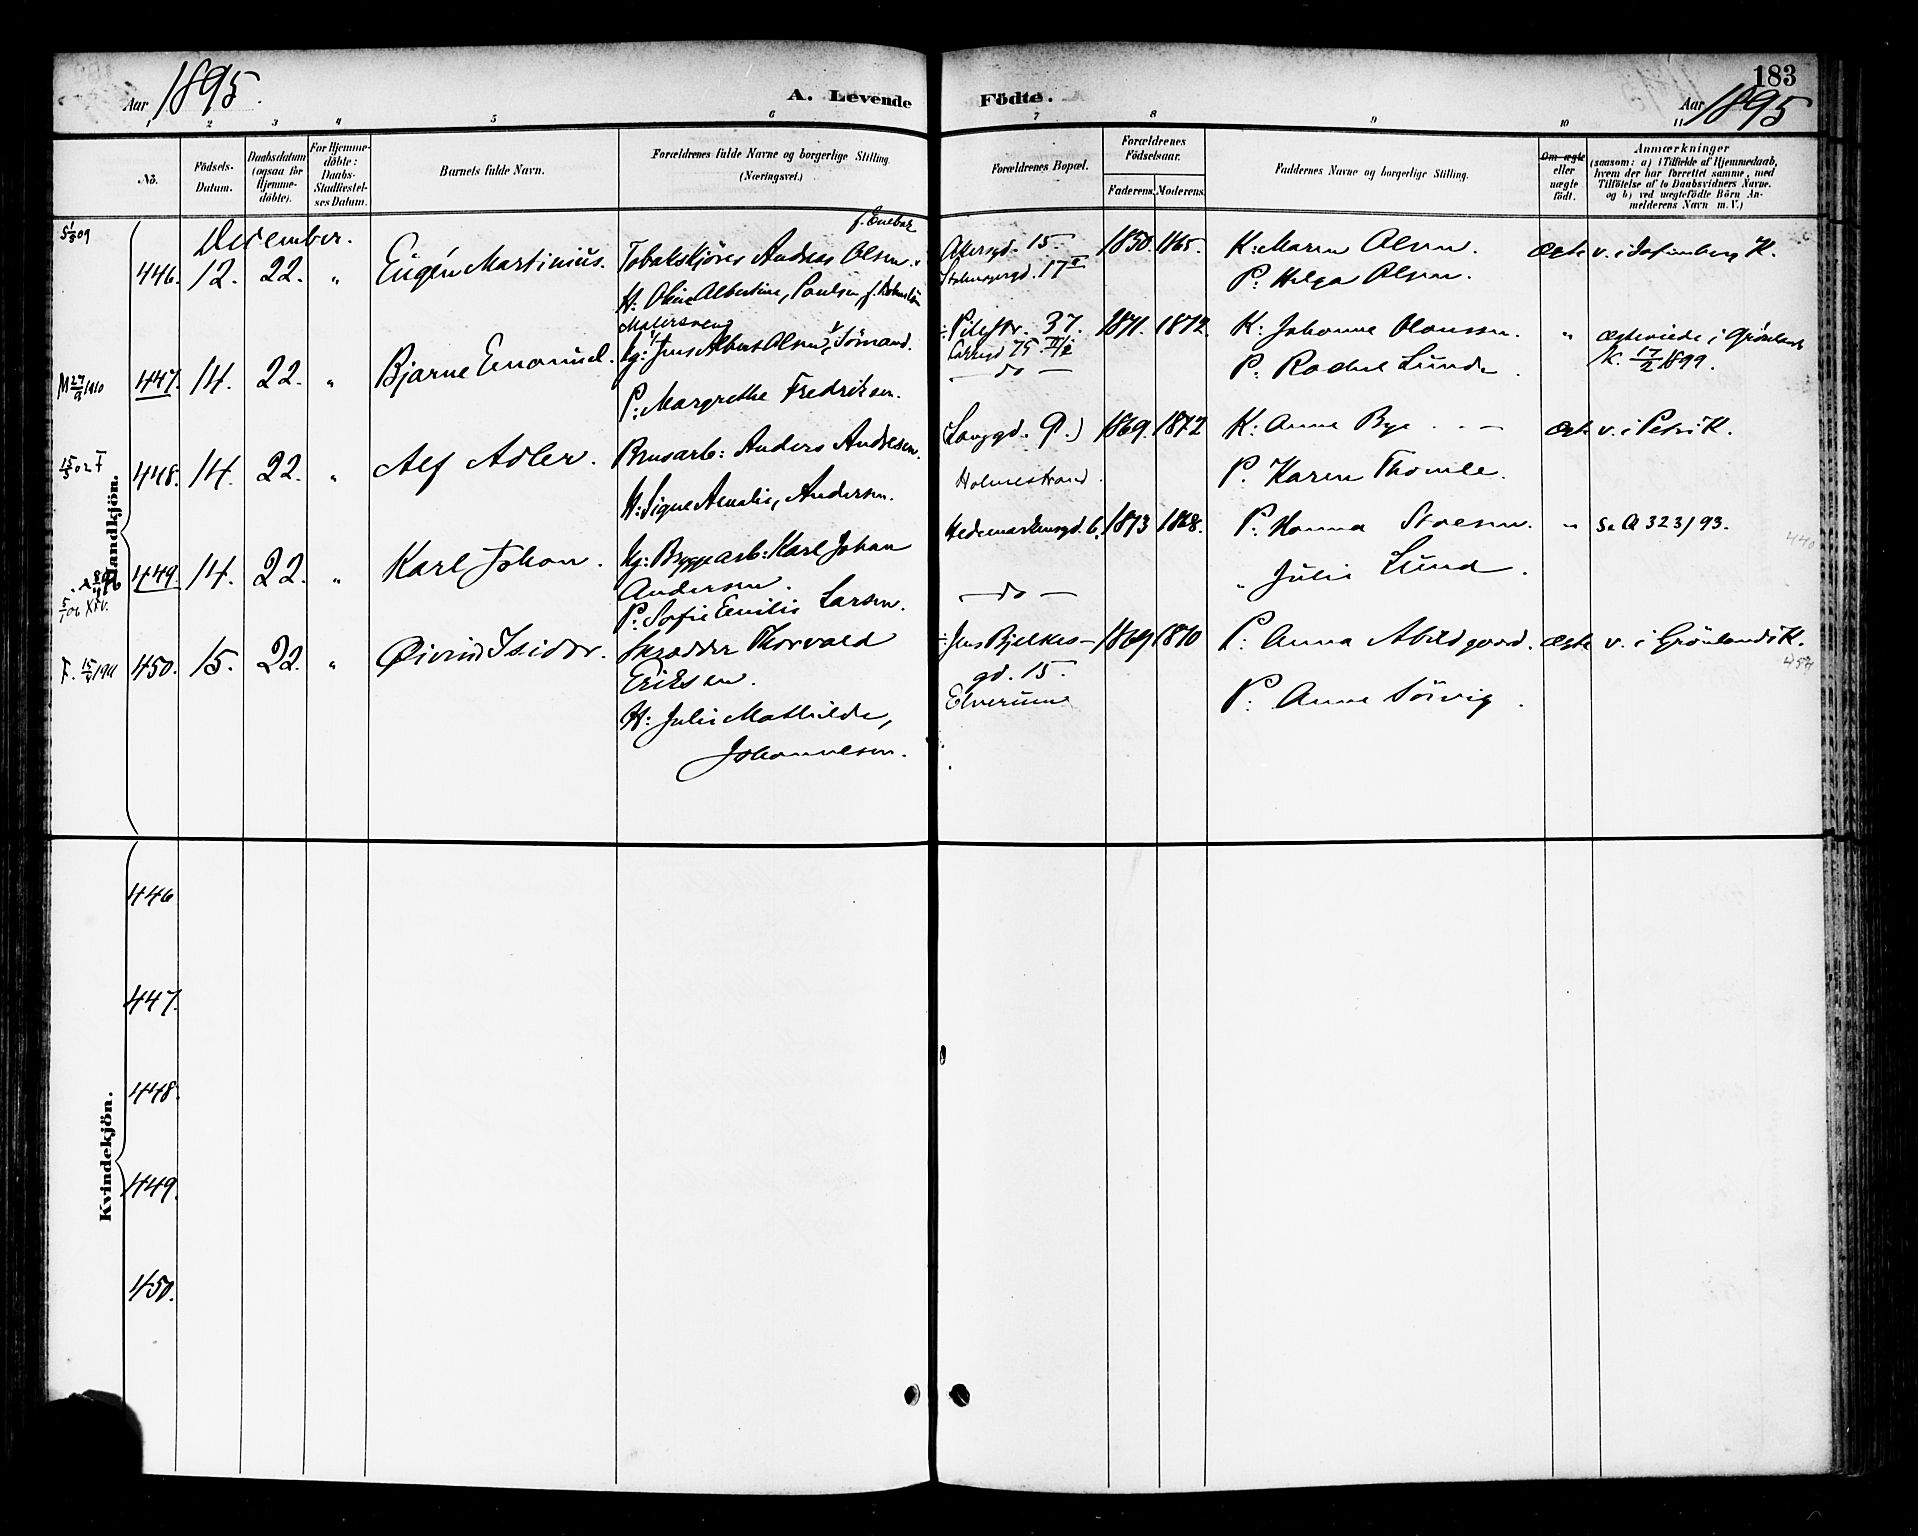 183
Aar 1895.
A. Levende Födte.
Aar 1895
1 2 3 4 5 6 7 8 9 10 11
No.
Födsels-Datum.
Daabsdatum (ogsaa for Hjemme-döbte).
For Hjemme-döbte: Daabs-Stadfæstel-ses Datum.
Barnets fulde Navn.
Forældrenes fulde Navne og borgerlige Stilling. (Næringsvei.)
Forældrenes Bopæl.
Forældrenes Födselsaar.
Faderens. Moderens.
Faddernes Navne og borgerlige Stilling.
Om ægte eller uægte födt.
Anmærkninger
(saasom: a) i Tilfælde af Hjemmedaab,
hvem der har forrettet samme, med
Tilföielse af to Daabsvidners Navne.
og b) ved uægtefödte Börn An-
melderens Navn m. V.)
Mandkjön.
December.
f. Enebak
446. 12. 22. " Eugén Martinius. Tobakskjöres Andreas Olsen. Akersgd. 15. 1850. 1865. K: Maren Olsen. ægte v. i K.
H: Oline Albertine, Paulsen 17 II P: Helga Olsen.
Malersvend
447. 14. 22. " Bjarne Emanuel. Kg: Jens Albert Olsen, Sömand. Pilestr. 37. 1871. 1872. K: Johanne Olaussen. " ægteviede i Grönlands
75 do K. 17/2 1899.
P: Margrethe Fredriksen. P: Rachel Lunde.
448. 14. 22. " Alf Adler. Brusarb: Anders Andresen. (Langgd. 9.) 1869. 1872 K: Anna Bye ægte v. i Petri K.
H: Signe Amalie, Andersen. Holmestrand. P. Karen Thomle.
449. 14. 22. " Karl Johan. Kg: Byggearb: Karl Johan Hedemarkensgd. 6. 1873 1868. P: Hanna " Se A 323/93.
Andersen. do " Julie Lund.
P: Sofie Emilie Larsen.
450. 15. 22. " Øivind Isidor. Skrædder Thorvald Jens Bjelkes- 1869 1870 P: Anna Abildgaard. ægte v. i Grönlands K.
Eriksen. gd. 15.
H: Julie Mathilde, Elverum P: Anna Sörvig.
Johannesen.
Kvindekjön.
446
447.
448.
449.
450.